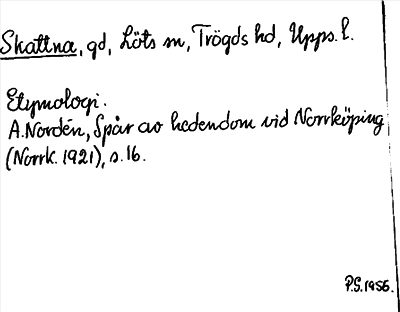 Skattna, gd, Löts sn, Trögds hd, Upps. l.
Etymologi.
A. Nordén, Spår av hedendom vid Norrköping
(Norrk. 1921), s. 16.
P.S. 1956.